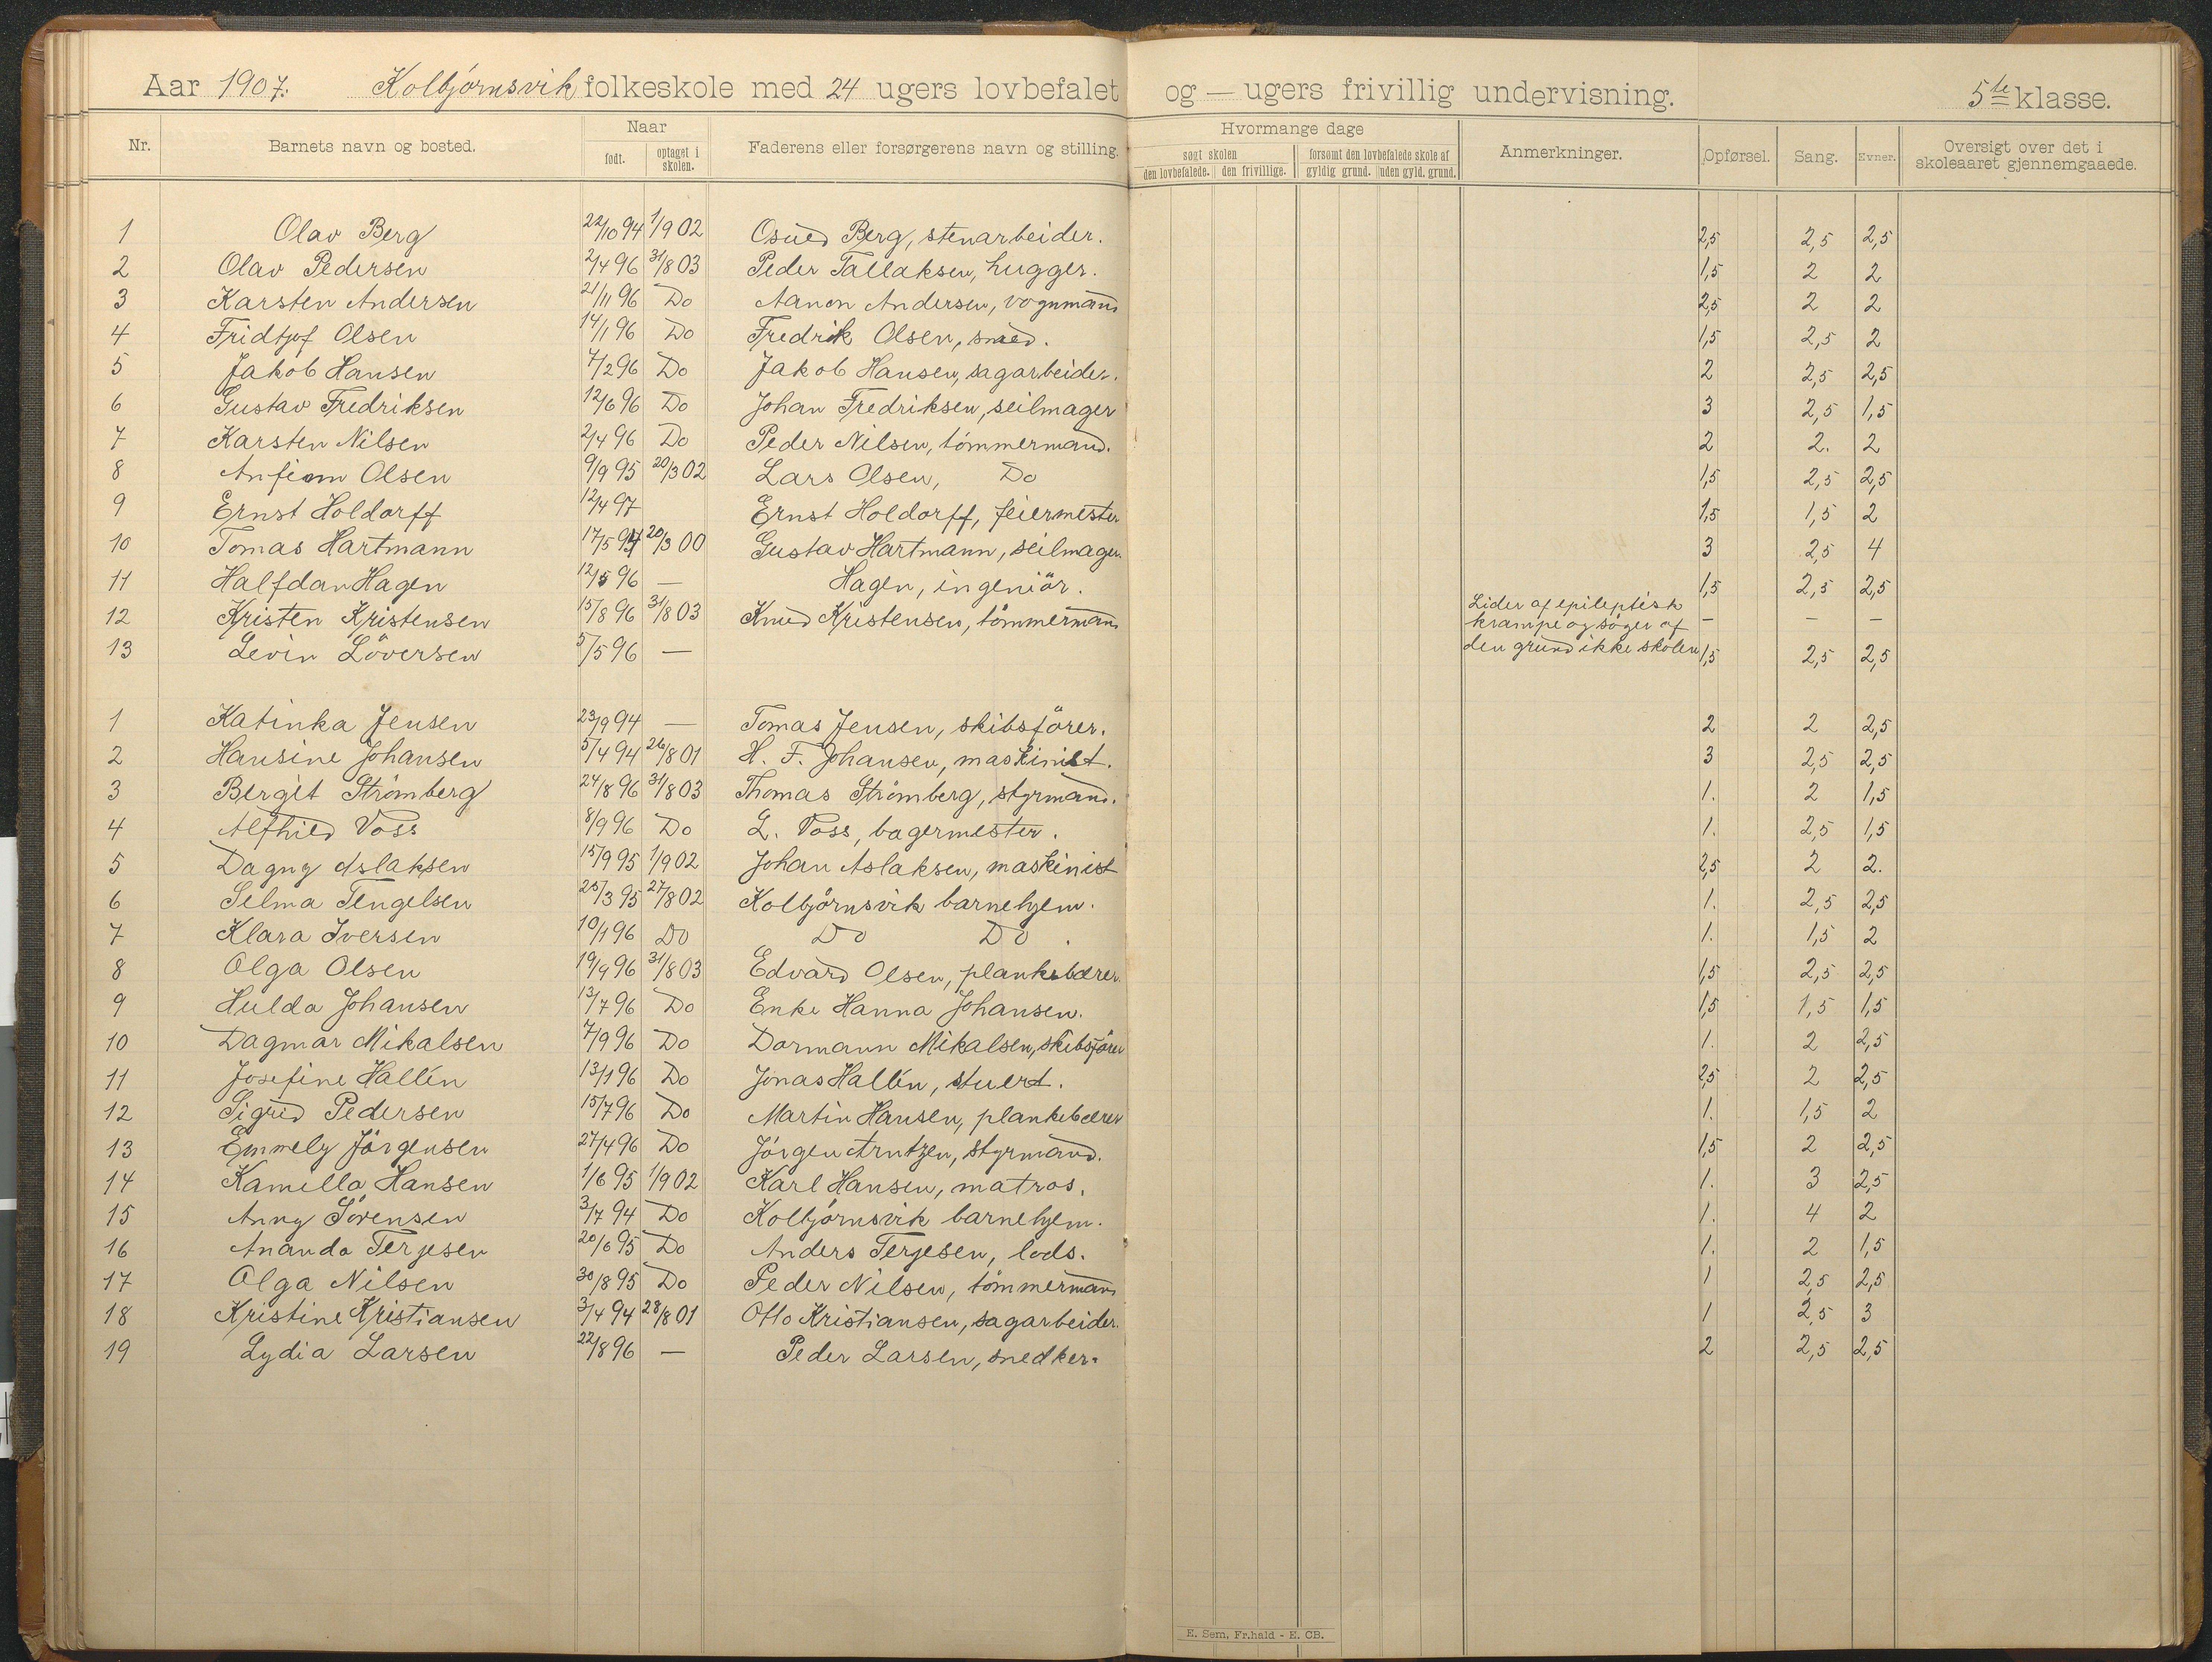 Aar 1907. Kolbjørnsvik folkeskole med 24 ugers lovbefalet og — ugers frivillig undervisning. 5te klasse.
Nr. Barnets navn og bosted. Naar født. optaget i skolen. Faderens eller forsørgerens navn og stilling. Hvormange dage søgt skolen den lovbefalede. den frivillige. forsømt den lovbefalede skole af gyldig grund. uden gyld. grund. Anmerkninger. Opførsel. Sang. Evner. Oversigt over det i skoleaaret gjennemgaaede.
1 Olav Berg 22/10 94 1/9 02 Osuld Berg, stenarbeider. 2,5 2,5 2,5
2 Olav Pedersen 2/4 96 31/8 03 Peder Tallaksen, hugger. 1,5 2 2
3 Karsten Andersen 21/11 96 Do Aanon Andersen, vognmand 2,5 2 2
4 Fridtjof Olsen 14/1 96 Do Fredrik Olsen, smed. 1,5 2,5 2
5 Jakob Hansen 7/2 96 Do Jakob Hansen, sagarbeider. 2 2,5 2,5
6 Gustav Fredriksen 12/6 96 Do Johan Fredriksen, seilmager 3 2,5 1,5
7 Karsten Nilsen 2/4 96 Do Peder Nilsen, tömmermand. 2 2. 2
8 Anfinn Olsen 9/9 95 20/3 02 Lars Olsen, Do 1,5 2,5 2,5
9 Ernst Holdorff 12/4 97 Ernst Holdorff, feiermester 1,5 1,5 2
10 Tomas Hartmann 17/5 94 20/3 00 Gustav Hartmann, seilmager. 3 2,5 4
11 Halfdan Hagen 12/5 96 — Hagen, ingeniör. 1,5 2,5 2,5
12 Kristen Kristensen 15/8 96 31/8 03 Knud Kristensen, tömmermand Lider af epileptisk krampe og søger af den grund ikke skolen — — —
13 Levin Löversen 5/5 96 — 1,5 2,5 2,5
1 Katinka Jensen 23/9 94 — Tomas Jensen, skibsförer. 2 2 2,5
2 Hansine Johansen 5/4 94 26/8 01 H. F. Johansen, maskinist. 3 2,5 2,5
3 Bergit Strömberg 24/8 96 31/8 03 Thomas Strömberg, styrmand. 1. 2 1,5
4 Alfhild Voss 8/9 96 Do L. Voss, bagermester. 1. 2,5 1,5
5 Dagny Aslaksen 15/9 95 1/9 02 Johan Aslaksen, maskinist 2,5 2 2.
6 Selma Tengelsen 25/3 95 27/8 02 Kolbjörnsvik barnehjem. 1. 2,5 2,5
7 Klara Iversen 10/1 96 Do Do Do. 1. 1,5 2
8 Olga Olsen 19/9 96 31/8 03 Edvard Olsen, plankebærer. 1,5 2,5 2,5
9 Hulda Johansen 13/7 96 Do Enke Hanna Johansen. 1,5 1,5 1,5
10 Dagmar Mikalsen 7/9 96 Do Dormann Mikalsen, skibsförer 1. 2 2,5
11 Josefine Hallén 13/1 96 Do Jonas Hallén, stuert. 2,5 2 2,5
12 Sigrid Pedersen 15/7 96 Do Martin Hansen, plankebærer 1. 1,5 2
13 Emmely Jörgensen 27/4 96 Do Jörgen Arntzen, styrmand. 1,5 2 2,5
14 Kamilla Hansen 1/6 95 1/9 02 Karl Hansen, matros. 1. 3 2,5
15 Anny Sörensen 3/7 94 Do Kolbjörnsvik barnehjem. 1. 4 2
16 Ananda Terjesen 20/6 95 Do Anders Terjesen, lods. 1. 2 1,5
17 Olga Nilsen 30/8 95 Do Peder Nilsen, tömmermand 1 2,5 2,5
18 Kristine Kristiansen 3/4 94 28/8 01 Otto Kristiansen, sagarbeider. 1 2,5 3
19 Lydia Larsen 22/8 96 — Peder Larsen, snedker. 2 2,5 2,5
E. Sem, Fr.hald - E. CB.